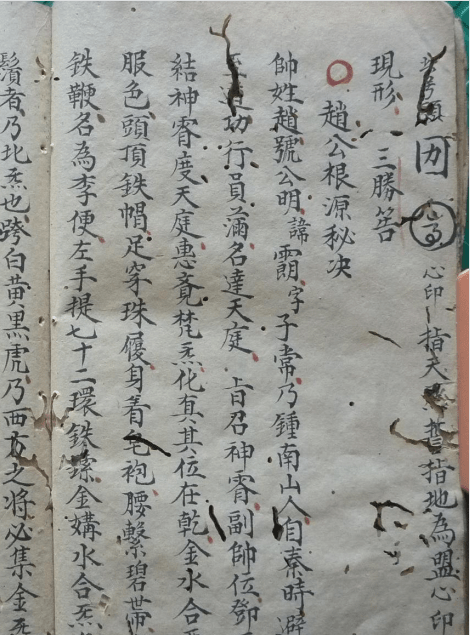 頭 心印指天誓指地為盟心印
現形 三勝筶
趙公根源秘决
帥姓趙號公明諱字子常乃鍾南山人自秦時避
功行員滿名達天庭 旨召神霄副帥位
結神霄度天庭惠竟梵炁化真其位在乾金水合
服色頭頂鉄帽足穿珠履身着皂袍腰繫碧帶
鉄鞭名為李便左手提七十二環鉄金媾水合炁
鬚者乃北炁也跨白黄黑虎乃西方之将必集金